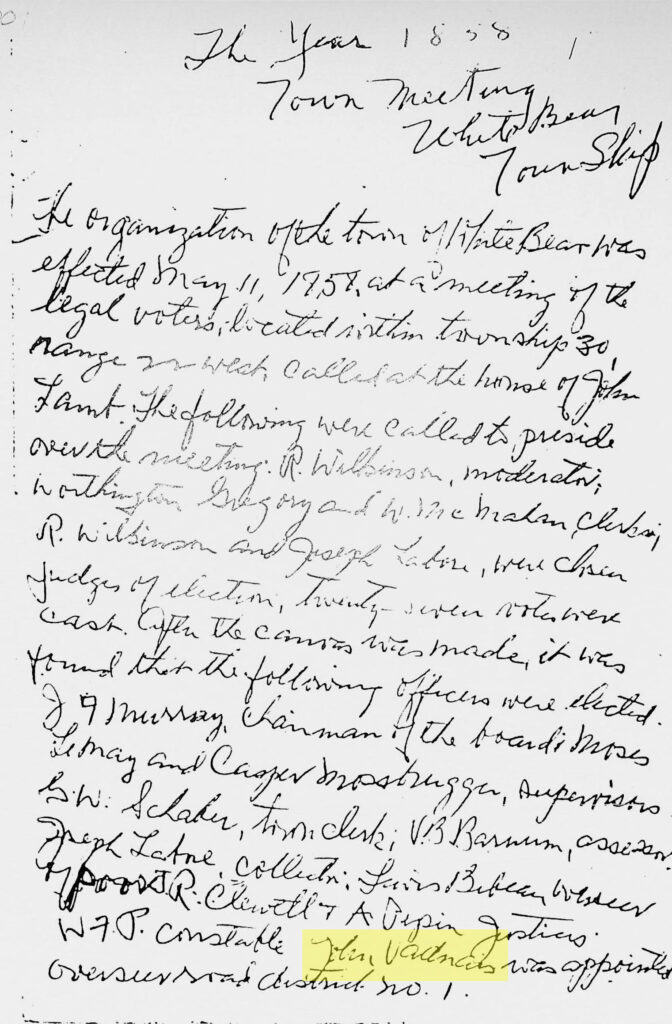 The Year 1858
Town Meeting
White Bear
Town Ship
The organization of the town of White Bear was
effected May 11, 1958, at a meeting of the
legal voters, located within township 30,
range west, called at the house of John
Lamb. The following were called to preside
over the meeting: R. Wilkinson, moderator;
Worthington Gregory and W. McMahan, clerks;
R. Wilkinson and Joseph Labore, were chosen
judges of election, twenty-seven votes were
cast. After the canvas was made, it was
found that the following officers were elected.
J F Murray, chairman of the board; Moses
LeMay and Casper Mossbrugger, supervisors
G.W. Schaber, town clerk; V.B. Barnum, assessor.
Joseph Labore, collector; Louis Bibeau overseer
of poor; R. Clewett & A. Pepin Justices.
W.F.P. constable John Vadnais was appointed
overseer road district no. 1.